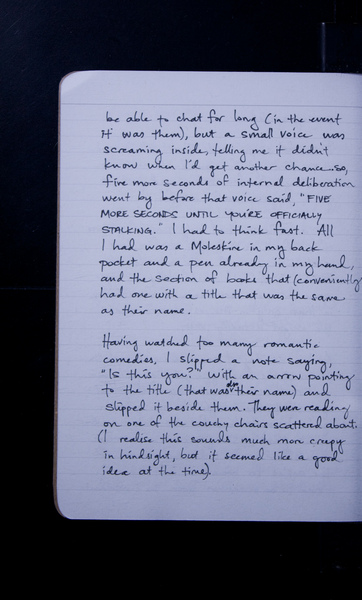 be able to chat for long (in the event
it was them), but a small voice was
screaming inside, telling me it didn't
know when I'd get another chance...so,
five more seconds of internal deliberation
went by before that voice said, "FIVE
MORE SECONDS UNTIL YOU'RE OFFICIALLY
STALKING." I had to think fast. All
I had was a Moleskine in my back
pocket and a pen already in my hand,
and the section of books that (conveniently)
had one with a title that was the same
as their name.
Having watched too many romantic
comedies, I slipped a note saying,
"Is this you?" with an arrow pointing
to the title (that was their name) and
slipped it beside them. They were reading
on one of the couchy chairs scattered about.
(I realise this sounds much more creepy
in hindsight, but it seemed like a good
idea at the time).